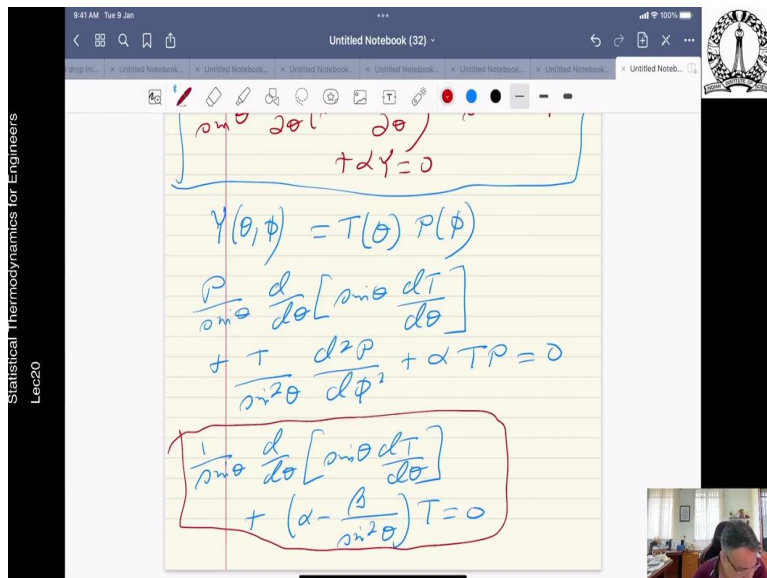 9:41 AM Tue 9 Jan
100%
Untitled Notebook (32)
Untitled Notebook...
Untitled Notebook...
Untitled Notebook...
Untitled Notebook...
Untitled Notebook...
Untitled Notebook...
Untitled Noteb...
Statistical Thermodynamics for Engineers
Lec20
+ αY = 0
Y(θ,ϕ) = T(θ) P(ϕ)
P/sinθ d/dθ [sinθ dT/dθ]
+ T/sin²θ d²P/dϕ² + αTP = 0
1/sinθ d/dθ [sinθ dT/dθ]
+ (α - β/sin²θ) T = 0